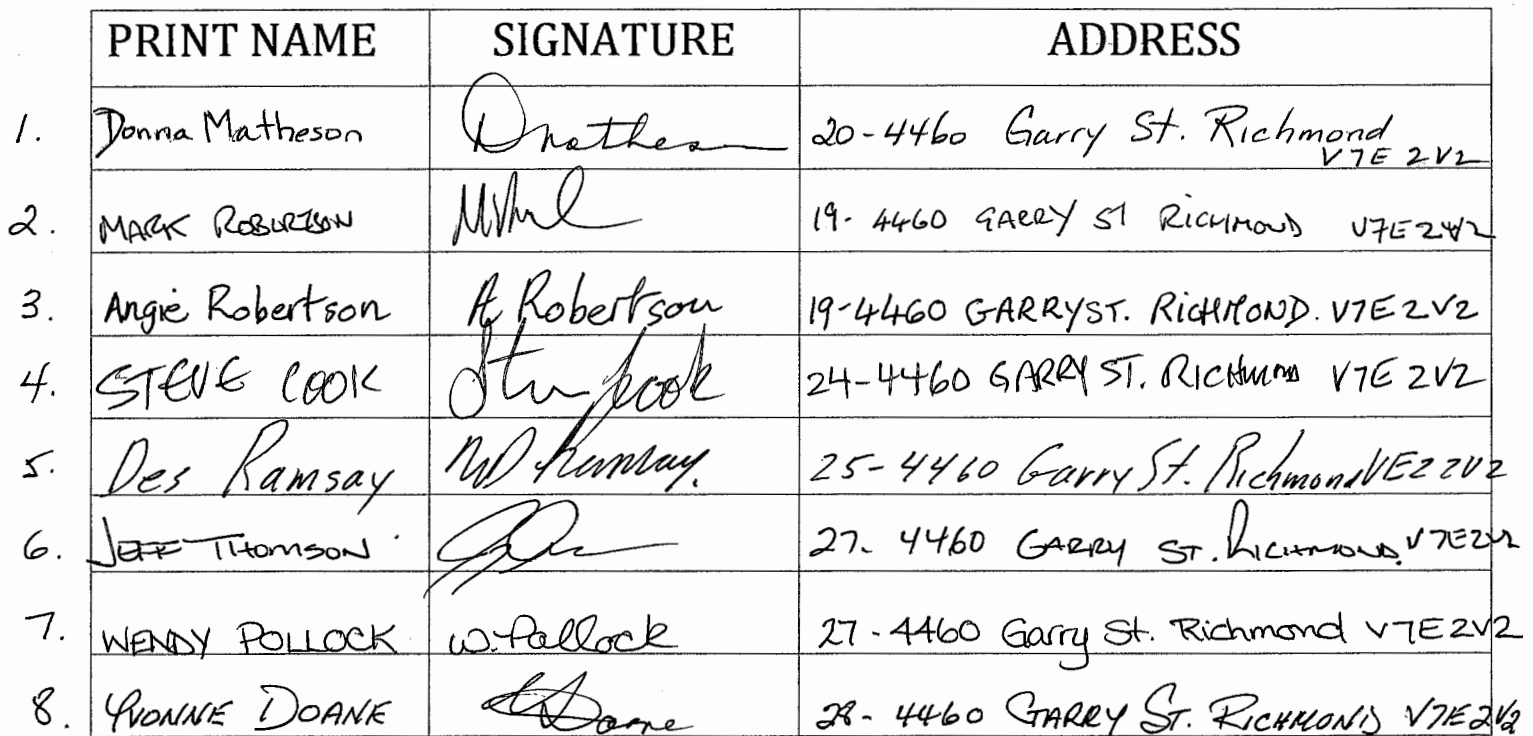 PRINT NAME SIGNATURE ADDRESS
1. Donna Matheson Dmathes 20-4460 Garry St. Richmond
V7E 2V2
2. MARK ROBERTSON 19- 4460 GARRY ST RICHMOND V7E2V2
3. Angie Robertson A Robertson 19-4460 GARRY ST. RICHMOND. V7E 2V2
4. STEVE COOK Cook 24-4460 GARRY ST. RICHMOND V7E 2V2
5. Des Ramsay Ramsay. 25-4460 Garry St. Richmond VE22V2
6. JEFF THOMSON 27- 4460 GARRY ST. RICHMOND. V7E2V2
7. WENDY POLLOCK W. Pollock 27-4460 Garry St. Richmond V7E2V2
8. YVONNE DOANE Doane 28- 4460 GARRY ST. RICHMOND V7E2V2